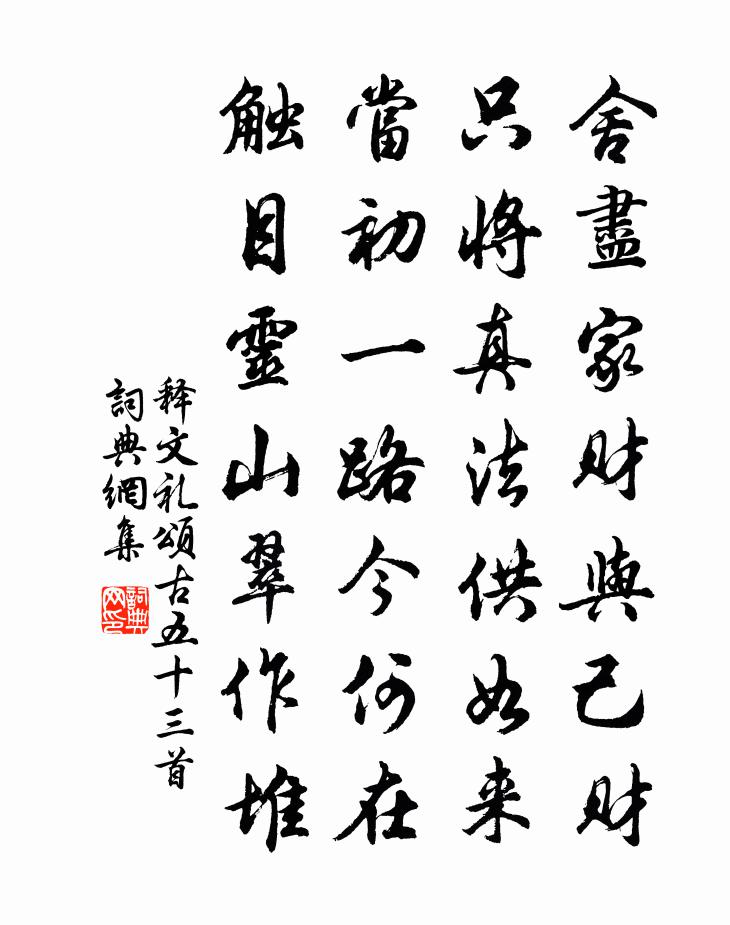 舍盡家财與己财
只將真法供如来
當初一路今何在
触目靈山翠作堆
释文礼頌古五十三首
詞典網集
詞典网印